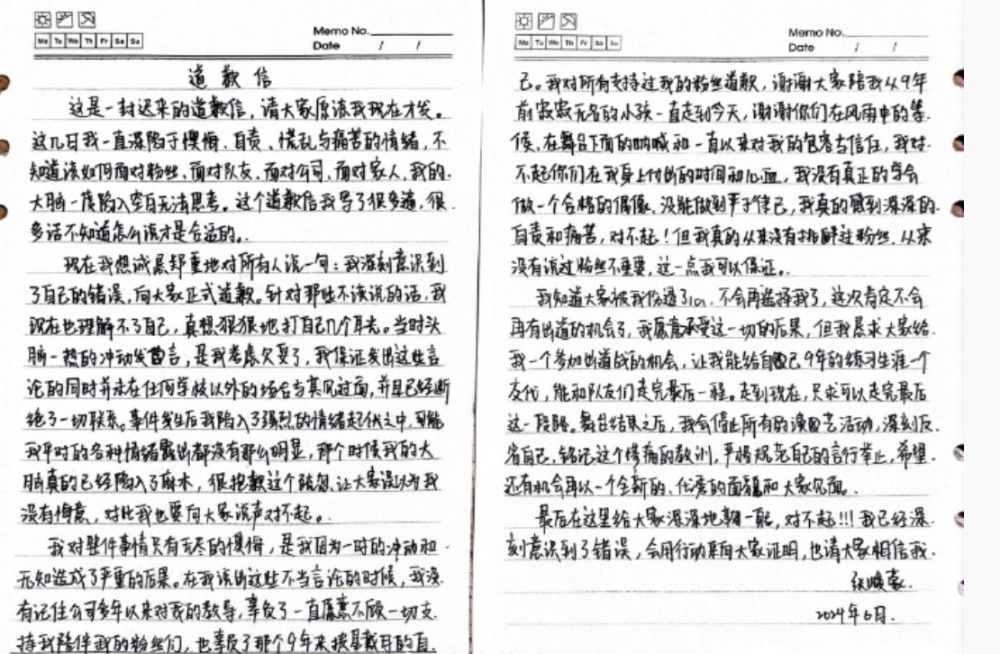 Memo No.
Mo Tu We Th Fr Sa Su
Date / /
道歉信
这是一封迟来的道歉信，请大家原谅我现在才发。
这几日我一直深陷于懊悔、自责、慌乱与痛苦的情绪，不
知道该如何面对粉丝、面对队友、面对公司、面对家人，我的
大脑一度陷入空白无法思考。这个道歉信我写了很多遍，很
多话不知道怎么说才是合适的。
现在我想诚恳郑重地对所有人说一句：我深刻意识到
了自己的错误，向大家正式道歉。针对那些不该说的话，我
现在也理解不了自己，真想狠狠地打自己几个耳光。当时头
脑一热的冲动发言，是我考虑欠妥了，我保证发出这些言
论的同时并未在任何学校以外的场合与其见过面，并且已经断
绝了一切联系。事件发生后我陷入了强烈的情绪起伏之中，可能
我平时的各种情绪露出都没有那么明显，那个时候我的大
脑真的已经陷入了麻木，很抱歉这个疏忽，让大家误以为我
没有悔意，对此我也要向大家说声对不起。
我对整件事情只有无尽的懊悔，是我因为一时的冲动和
无知造成了严重的后果。在我说出这些不当言论的时候，我没
有记住公司多年以来对我的教导，辜负了一直愿意不顾一切支
持我陪伴我的粉丝们，也辜负了那个9年来披星戴月的自
Memo No.
Mo Tu We Th Fr Sa Su
Date / /
己。我对所有支持过我的粉丝道歉，谢谢大家陪我从9年
前寂寂无名的小孩一直走到今天，谢谢你们在风雨中的等
候、在舞台下面的呐喊和一直以来对我的包容与信任，我对
不起你们在我身上付出的时间和心血，我没有真正的学会
做一个合格的偶像、没能做到严于律己，我真的感到深深的
自责和痛苦，对不起！但我真的从来没有排解过粉丝，从来
没有说过粉丝不重要，这一点我可以保证。
我知道大家被我伤透了心，不会再选择我了，这次肯定不会
再有出道的机会了，我愿意承受这一切的后果，但我恳求大家给
我一个参加出道战的机会，让我能给自己9年的练习生涯一个
交代，能和队友们走完最后一程。走到现在，只求可以走完最后
这一段路。舞台结束之后，我会停止所有的演艺活动，深刻反
省自己，铭记这个惨痛的教训，严格规范自己的言行举止，希望
还有机会再以一个全新的、优秀的面貌和大家见面。
最后在这里给大家深深地鞠一躬，对不起!!!我已经深
刻意识到了错误，会用行动来向大家证明，也请大家相信我。
张峻豪
2024年6月.